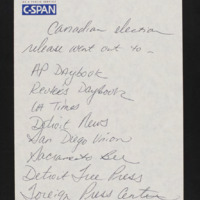 C-SPAN
Canadian election
release went out to -
AP Daybook
Reuters Daybook
LA Times
Detroit News
San Diego Union
Sacramento Bee
Detroit Free Press
Foreign Press Center